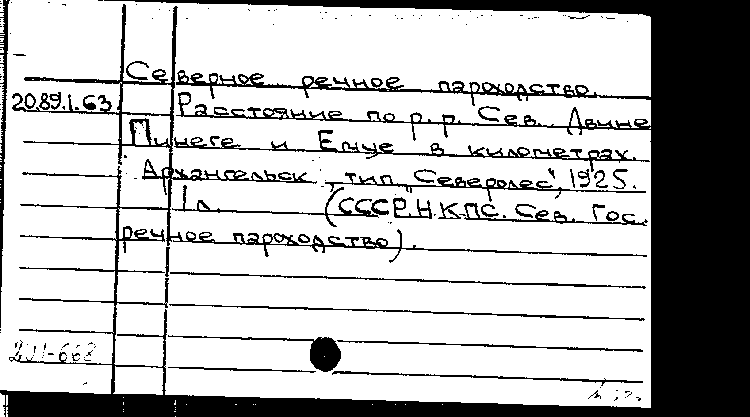 Северное речное пароходство.
20.89.1.63. Расстояние по р.р. Сев. Двине
Пинеге и Емце в километрах.
Архангельск, тип. "Северолес", 1925.
1 л. (СССР.Н.К.П.С. Сев. Гос.
речное пароходство).